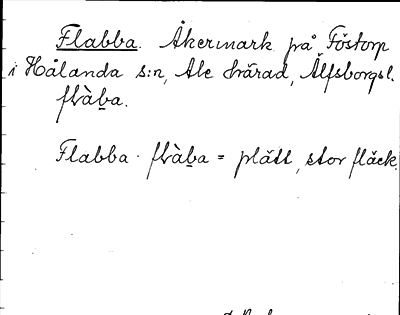 Flabba. Åkermark på Föstorp
i Hålanda s:n, Ale härad, Älfsborgsl.
flàba.
Flabba. flàba = plätt, stor fläck.